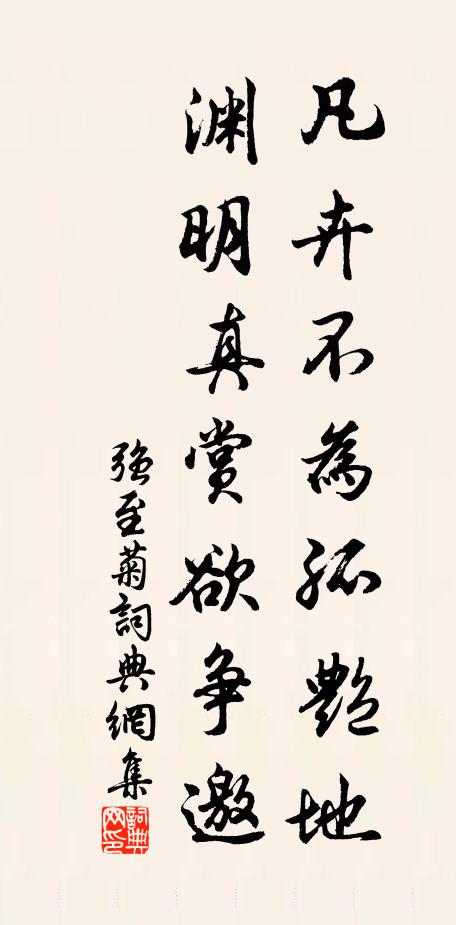 凡卉不為孤艷地
淵明真賞欲爭邀
強至菊詞典網集
詞典網印